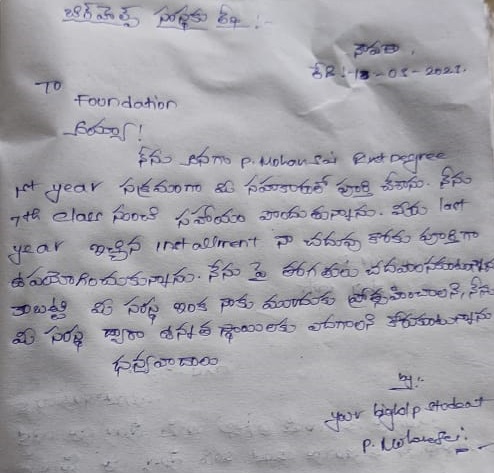 బిగ్‌హెల్ప్ సంస్థకు లేఖ :-
తేది :- 13-05-2021.
TO
Foundation
అయ్యా!
నేను అనగా P. Mohan Sai Degree
1st year సక్రమంగా మీ సహకారంతో పూర్తి చేశాను. నేను
7th class నుంచి సహాయం పొందుతున్నాను. మీరు last
year ఇచ్చిన installment నా చదువు కొరకు పూర్తిగా
ఉపయోగించుకున్నాను. నేను పై తరగతులు
కాబట్టి మీ సంస్థ ఇంక నాకు ముందుకు ప్రోత్సహించాలని, నేను
మీ సంస్థ ద్వారా ఉన్నత స్థాయిలకు ఎదగాలని కోరుకుంటున్నాను
ధన్యవాదాలు
by:-
your bighelp student
P. Mohansai.